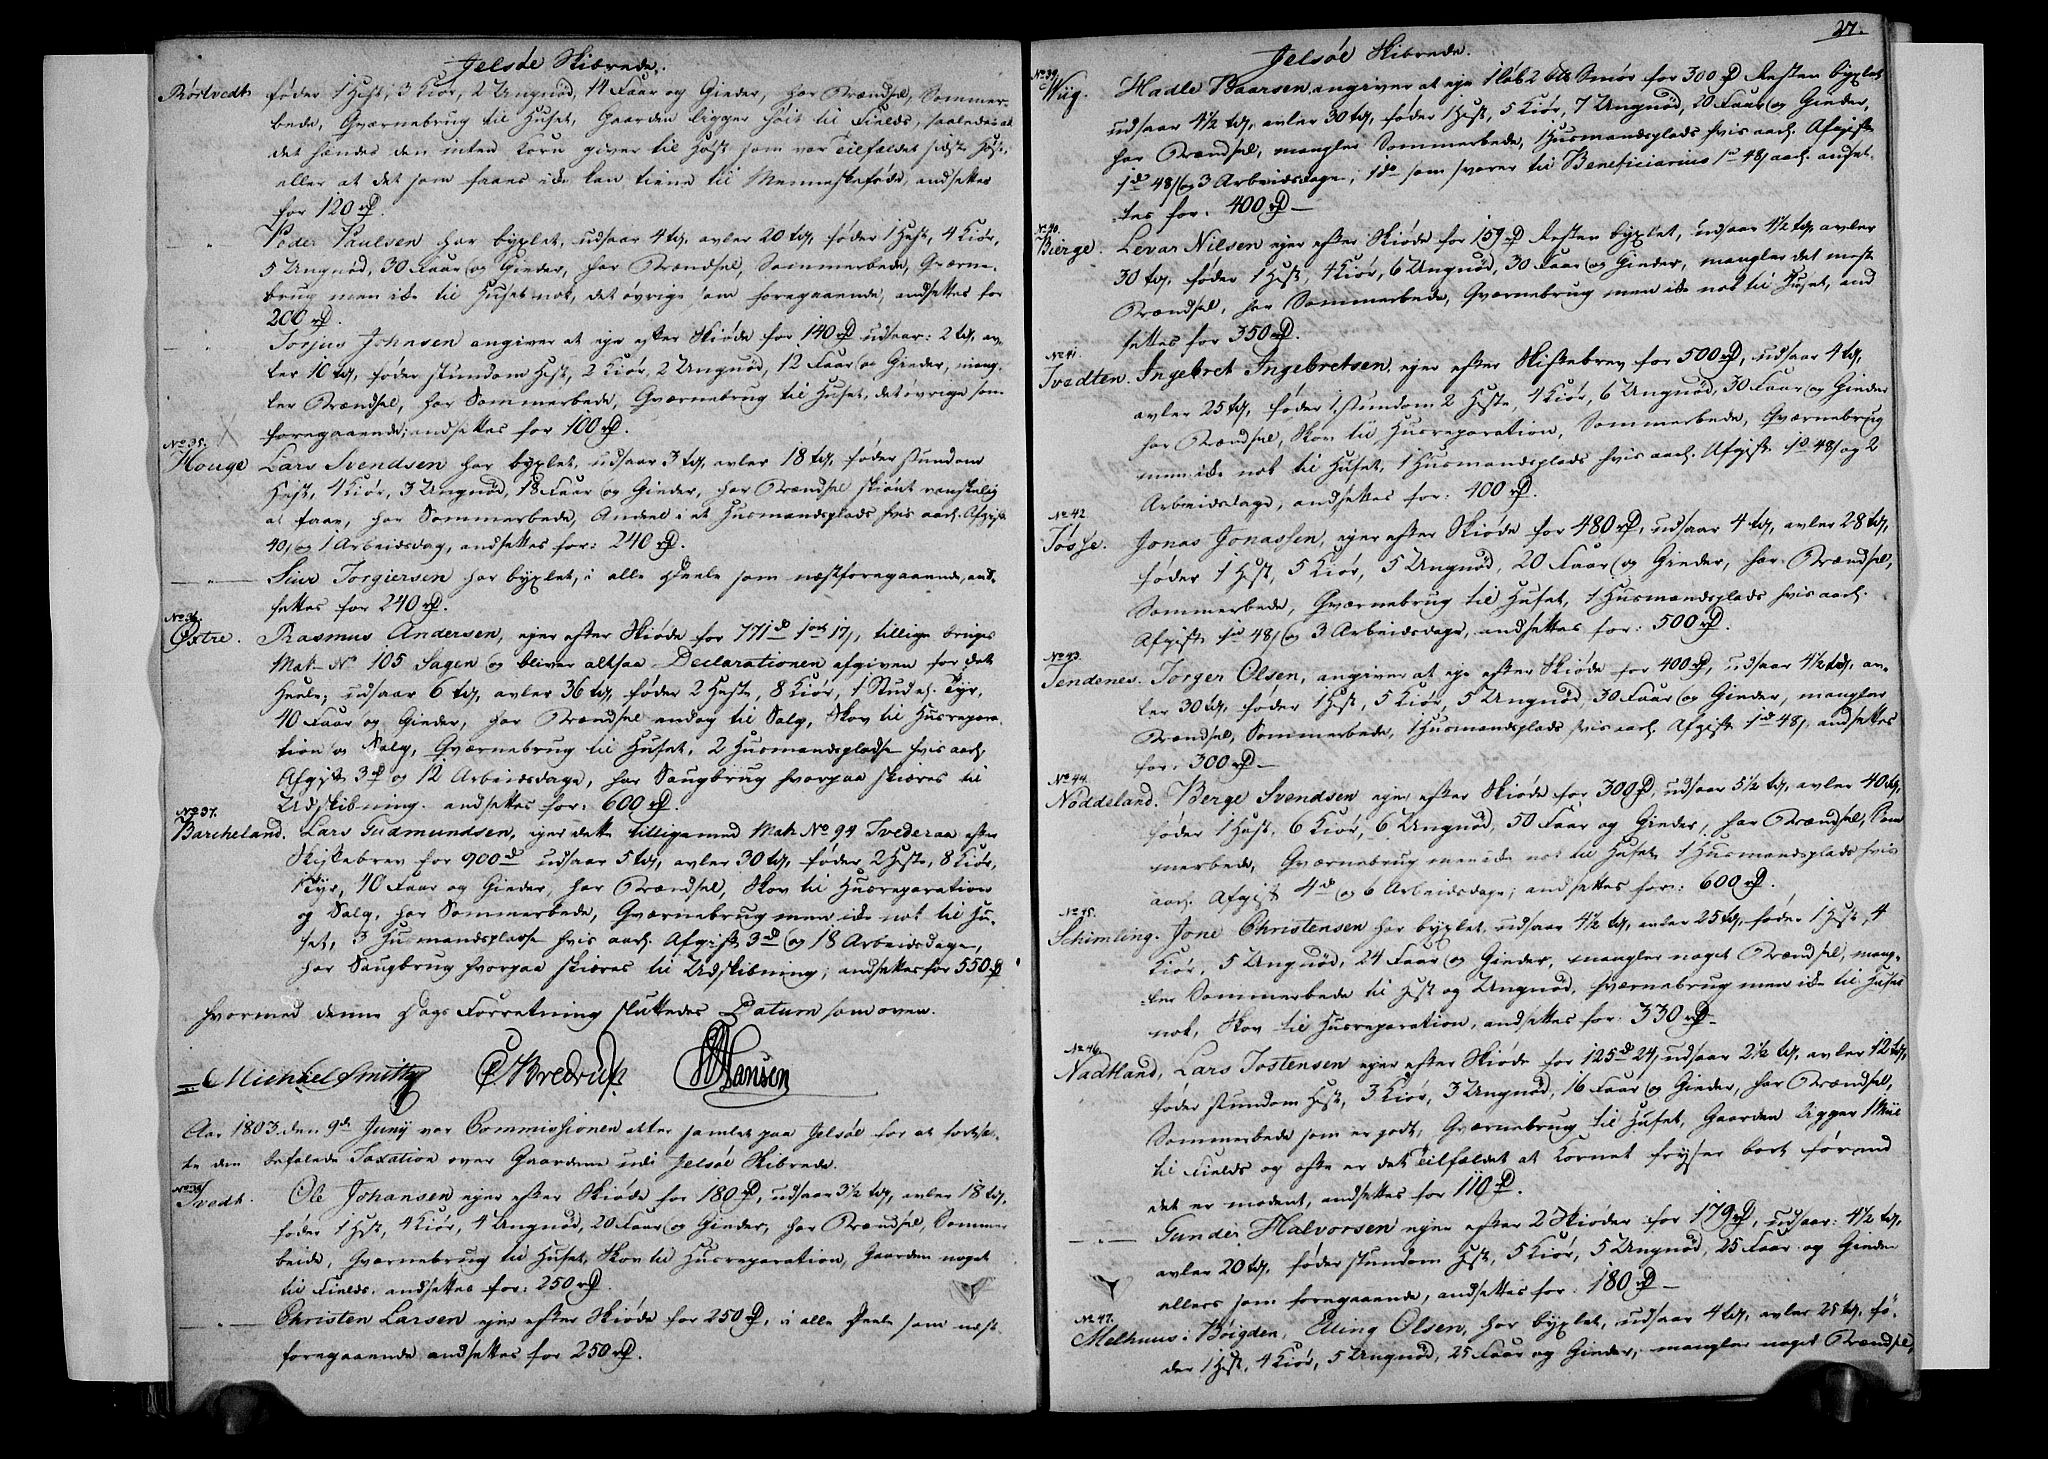 Jelsöe Skibrede.
Rörtvedt föder 1 Hest, 3 Kiör, 2 Ungnöd, 14 Faar og Gieder, har Brændsel, Sommer-
bede, Qværnebrug til Huset, Gaarden ligger höit til Fields, saaledes at
det hændes den inten Korn giver til Höst som var Tilfældet sidste Höst,
eller at det som faaes ikke kan tiene til Menneskeföde, andsettes
for 120 rd.
— " Peder Paulsen har byxlet, udsaar 4 td, avler 20 td, föder 1 Hest, 4 Kiör,
5 Ungnöd, 30 Faar og Gieder, har Brændsel, Sommerbede, Qværne-
brug men ikke til Huset nok, det övrige som foregaaende, andsettes for
200 rd.
— " Torjus Johnsen angiver at eje efter Skiöde for 140 rd udsaar: 2 td, av-
ler 10 td, föder stundom Hest, 2 Kiör, 2 Ungnöd, 12 Faar og Gieder, mang-
ler Brændsel, har Sommerbede, Qværnebrug til Huset, det övrige som
foregaaende; andsettes for 100 rd.
No 35.
Houge Lars Svendsen har byxlet, udsaar 3 td, avler 18 td, föder stundom
Hest, 4 Kiör, 3 Ungnöd, 18 Faar og Gieder, har Brændsel skiönt vanskelig
at faae, har Sommerbede, Andeel i et Husmandsplads hvis aarl. Afgift
40 s og 1 Arbeidsdag, andsettes for: 240 rd.
— " — Siur Torgiersen har byxlet, i alle Deele som næstforegaaende, and-
settes for 240 rd.
No 36.
Østre. Rasmus Andersen, ejer efter Skiöde for 771 d 1 ort 17 s, tillige bruges
Mat. No 105 Sagen og bliver altsaa Declarationen afgiven for det
Heele; udsaar 6 td, avler 36 td, föder 2 Heste, 8 Kiör, 1 Stud el. Tyr,
40 Faar og Gieder, har Brændsel endog til Salg, Skov til Husrepara-
tion og Salg, Qværnebrug til Huset, 2 Husmandspladse hvis aarl.
Afgift 3 d og 12 Arbeidsdage, har Saugbrug hvorpaa skiæres til
Udskibning. andsettes for: 600 rd.
No 37.
Barcheland. Lars Gudmundsen, ejer dette tilligemed Mat. No 94 Tvederaa efter
Skiftebrev for 900 d udsaar 5 td, avler 30 td, föder 2 Heste, 8 Kiör,
1 Tyr, 40 Faar og Gieder, har Brændsel, Skov til Husreparation
og Salg, har Sommerbede, Qværnebrug men ikke nok til Hu-
set, 3 Husmandspladse hvis aarl. Afgift 3 d og 18 Arbeidsdage,
har Saugbrug hvorpaa skiæres til Udskibning; andsettes for 550 rd
hvormed denne Dags Forretning sluttedes Datum som oven.
Michael Smitt C Bredrup Hansen
Aar 1803. den 9de Junij var Commissionen atter samlet paa Jelsöe for at fortsæt-
te den befalede Taxation over Gaardene udi Jelsöe Skibrede.
No 38
Tvedt. Ole Johansen ejer efter Skiöde for 180 rd, udsaar 3½ td, avler 18 td,
föder 1 Hest, 4 Kiör, 4 Ungnöd, 20 Faar og Gieder, har Brændsel, Sommer-
beide, Qværnebrug til Huset, Skov til Husreparation, Gaarden noget
til Fields. andsettes for: 250 rd.
— " — Christen Larsen ejer efter Skiöde for 250 rd, i alle Deele som næst-
foregaaende andsettes for 250 rd.
27.
Jelsöe Skibrede.
No 39.
Wiig. Hadle Baarsen angiver at eje 1 löb 2 Smör for 300 rd Resten byxlet
udsaar 4½ td, avler 30 td, föder 1 Hest, 5 Kiör, 7 Ungnöd, 20 Faar og Gieder,
har Brændsel, mangler Sommerbede, 1 Husmandsplads hvis aarl. Afgift
1 d 48 s og 3 Arbeidsdage, 1 do som svarer til Beneficiarius 1 d 48 s aarl. andset-
tes for: 400 rd —
No 40.
Bierge. Levar Nilsen ejer efter Skiöde for 159 rd Resten byxlet, udsaar 4½ td, avler
30 td, föder 1 Hest, 4 Kiör, 6 Ungnöd, 30 Faar og Gieder, mangler det meste
Brændsel, har Sommerbede, Qværnebrug men ikke nok til Huset, and
settes for 350 rd.
No 41.
Tvedten. Ingebret Ingebretsen, ejer efter Skiftebrev for 500 rd, udsaar 4 td,
avler 25 td, föder stundom 2 Heste, 4 Kiör, 6 Ungnöd, 30 Faar og Gieder
har Brændsel, Skov til Husreparation, Sommerbede, Qværnebrug
men ikke nok til Huset, 1 Husmandsplads hvis aarl. Afgift 1 d 48 s og 2
Arbeidsdage, andsettes for: 400 rd.
No 42.
Tösse. Jonas Jonassen, ejer efter Skiöde for 480 rd, udsaar 4 td, avler 28 td,
föder 1 Hest, 5 Kiör, 5 Ungnöd, 20 Faar og Gieder, har Brændsel,
Sommerbede, Qværnebrug til Huset, 1 Husmandsplads hvis aarl.
Afgift 1 d 48 s og 3 Arbeidsdage, andsettes for: 500 rd.
No 43.
Tendenes. Torger Olsen, angiver at eje efter Skiöde for 400 rd, udsaar 4½ td, av-
ler 30 td, föder 1 Hest, 5 Kiör, 5 Ungnöd, 30 Faar og Gieder, mangler
Brændsel, Sommerbede, 1 Husmandsplads hvis aarl. Afgift 1 d 48 s, andsettes
for: 300 rd —
No 44.
Nöddeland. Berge Svendsen ejer efter Skiöde for 300 rd, udsaar 5½ td, avler 40 td,
föder 1 Hest, 6 Kiör, 6 Ungnöd, 50 Faar og Gieder, har Brændsel, Som
merbede, Qværnebrug men ikke nok til Huset, 1 Husmandsplads hvis
aarl. Afgift 4 d og 6 Arbeidsdage; andsettes for: 600 rd.
No 45.
Schimling. Jone Christensen har byxlet, udsaar 4½ td, avler 25 td, föder 1 Hest, 4
Kiör, 5 Ungnöd, 24 Faar og Gieder, mangler noget Brændsel, mang-
ler Sommerbede til Hest og Ungnöd, Qværnebrug men ikke til Huset
nok, Skov til Husreparation, andsettes for: 330 rd —
No 46.
Nadtland, Lars Tostensen ejer efter Skiöde for 125 d 24 s, udsaar 2½ td, avler 12 td,
föder stundom Hest, 3 Kiör, 3 Ungnöd, 16 Faar og Gieder, har Brændsel,
Sommerbede som er godt, Qværnebrug til Huset, Gaarden ligger 1 Miil
til Fields og ofte er det Tilfældet at Kornet fryser bort förend
det er modent, andsettes for 110 rd.
— " — Gunder Halvorsen ejer efter 2 Skiöder for 179 rd, udsaar: 4½ td,
avler 20 td, föder stundom Hest, 5 Kiör, 5 Ungnöd, 25 Faar og Gieder
ellers som foregaaende, andsettes for: 180 rd —
No 47.
Melhuus: Böigden, Eling Olsen, har byxlet, udsaar 4 td, avler 25 td, fö-
der 1 Hest, 4 Kiör, 5 Ungnöd, 25 Faar og Gieder, mangler noget Brændsel,